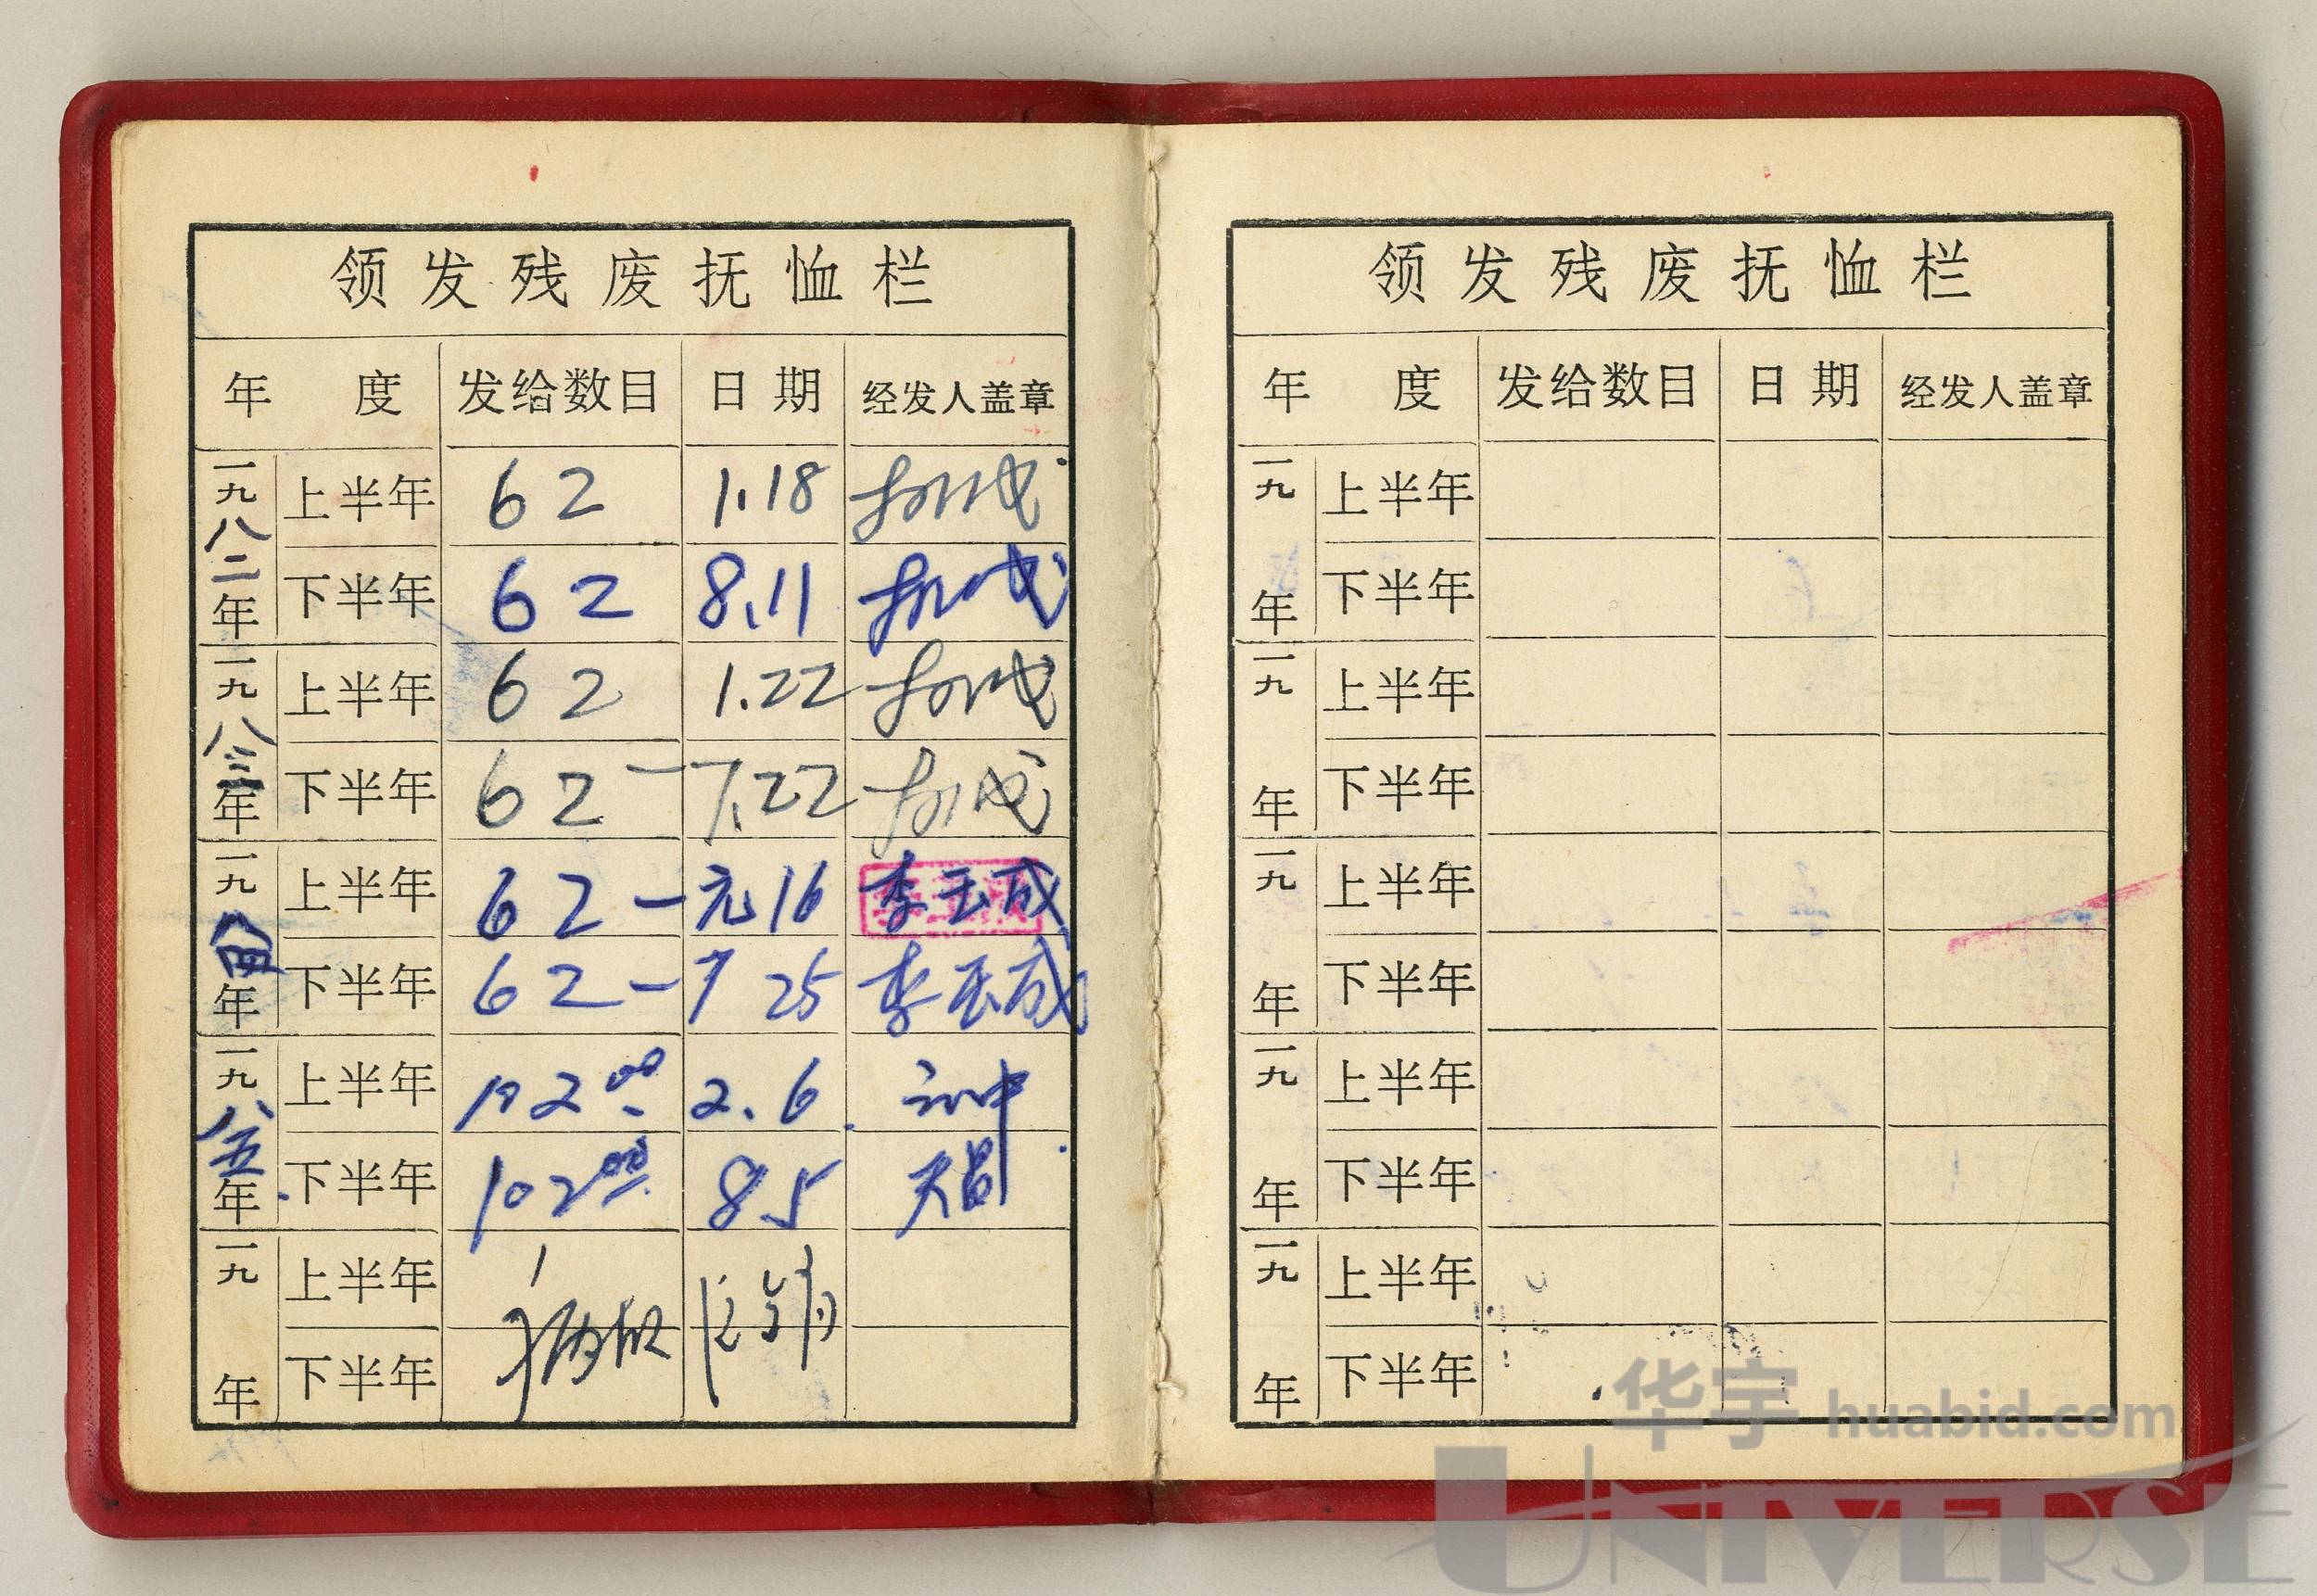 领发残废抚恤栏
年度 发给数目 日期 经发人盖章
一九八二年 上半年 62 1.18
下半年 62 8.11
一九八三年 上半年 62 1.22
下半年 62- 7.22
一九八四年 上半年 62- 元16 李玉成
下半年 62- 7 25 李玉成
一九八五年 上半年 102.00 2.6
下半年 102.00 8.5
一九 年 上半年
下半年
领发残废抚恤栏
年度 发给数目 日期 经发人盖章
一九 年 上半年
下半年
一九 年 上半年
下半年
一九 年 上半年
下半年
一九 年 上半年
下半年
一九 年 上半年
下半年
华宇 huabid.com
UNIVERSE